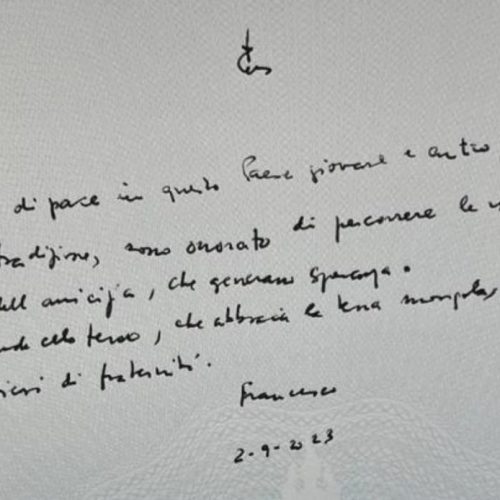 di pace in questo Paese giovane e antico
tradizione, sono onorato di percorrere le
dell'amicizia, che generano speranza.
cielo terso, che abbraccia la terra mongola,
di fraternità.
Francesco
2-9-2023